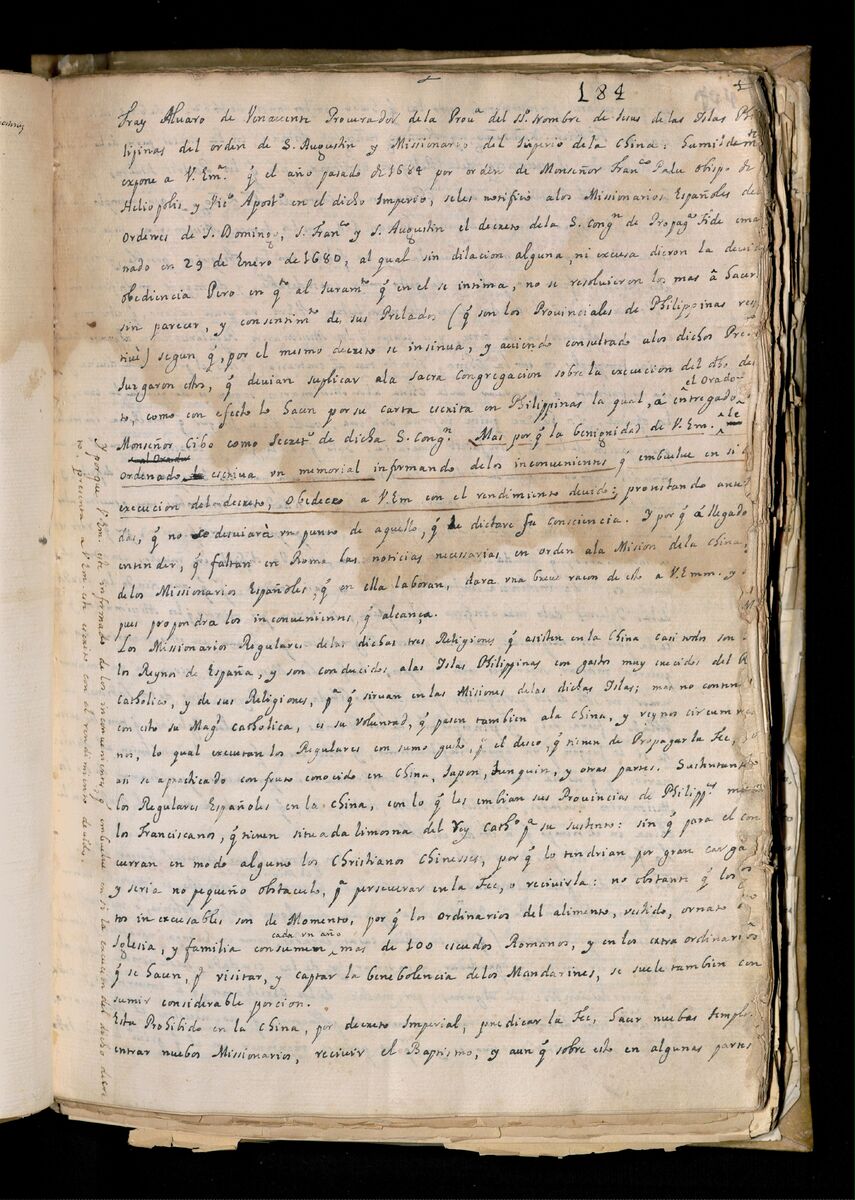 184
Fray Alvaro de Venavente Procurador de la Prouª del SSº Nombre de Jesus de las Islas Phi
lipinas del orden de S. Augustin y Missionario del Imperio de la China: Humildemte
expone a V. Emª. q̃ el año pasado de 1684 por orden de Monseñor Franco Palu obispo de
Heliopolis y Vico Apostº en el dicho Imperio, seles notificò alos Missionarios Españoles de
Ordenes de S. Domingo, S. Franco y S. Augustin el decreto dela S. Congn de Propagª Fide ema
nado en 29 de Enero de 1680, al qual sin dilacion alguna, ni excusa dieron la devid
obediencia Pero en qto al Juramto q̃ en el se intima, no se resoluieron los mas â Hacer
sin parecer, y consentimto de sus Prelados (q̃ son los Provinciales de Philippinas res
tiuè) segun q̃, por el mismo decreto se insinua, y aviendo consultado alos dichos Pre
Juzgaron estos, q̃ devian suplicar ala Sacra Congregacion sobre la execucion del dho de
to, como con efecto lo Hacen por su carta escrita en Philippinas la qual, á entregado
el Orador
Monseñor Cibo como Secreto de dicha S. Congn. Mas por q̃ la benignidad de V. Em. le
al Orador
ordenado escriva vn memorial informando delos inconvenientes q̃ embuelve en si
execucion del decreto, obedece a V. Em con el rendimiento devido; protestando ante
das, q̃ no se desuiarà vn punto de aquello, q̃ le dictare su consciencia. Y por q̃ á llegado
entender, q̃ faltan en Roma las noticias necessarias en orden ala Mision dela China,
delos Missionarios Españoles q̃ en ella laboran, dara vna breve racon de esto a V. Emm. y
pues propondra los inconvenientes q̃ alcança.
Los Missionarios Regulares delas dichas tres Religiones q̃ asisten en la China casi todos son
los Reynos de España, y son conducidos alas Islas Philippinas con gastos muy crecidos del R
Catholico, y de sus Religiones, pª q̃ sirvan en las Misiones delas dichas Islas; mas no conten
con esto su Magd Catholica, es su voluntad, q̃ pasen tambien ala China, y reynos circumve
nos, lo qual executan los Regulares con sumo gusto, pr el deseo, q̃ tienen de Propagar la Fee,
asi se à practicado con fruto conocido en China, Japon, Tunquin, y otras partes. Sustentan
los Regulares Españoles en la China, con lo q̃ les embian sus Provincias de Philippas
los Franciscanos, q̃ tienen situada limosna del Rey Catho pª su sustento: sin q̃ para el con
curran en modo alguno los Christianos Chinesses, por q̃ lo tendrian por gran carga
y seria no pequeño obstaculo, pª perseverar en la Fee, o recivirla: no obstante q̃ los
tos inexcusables son de Momento, por q̃ los ordinarios del alimento, vestido, ornato
cada vn año
Iglesia, y familia consumen mas de 100 escudos Romanos, y en los extraordinarios
q̃ se Hacen, pª visitar, y captar la benebolencia delos Mandarines, se suele tambien con
sumir considerable porcion.
Esta Prohibido en la China, por decreto Imperial, predicar la Fee, Hacer nuebos templo
entrar nuebos Missionarios, recivir el Baptismo, y aun q̃ sobre esto en algunas partes
Y porque V. Em. esté informado de los inconvenientes q̃ embuelve en si la execucion del dicho decre
to, presenta a V. Em este escrito con el rendimiento devido.